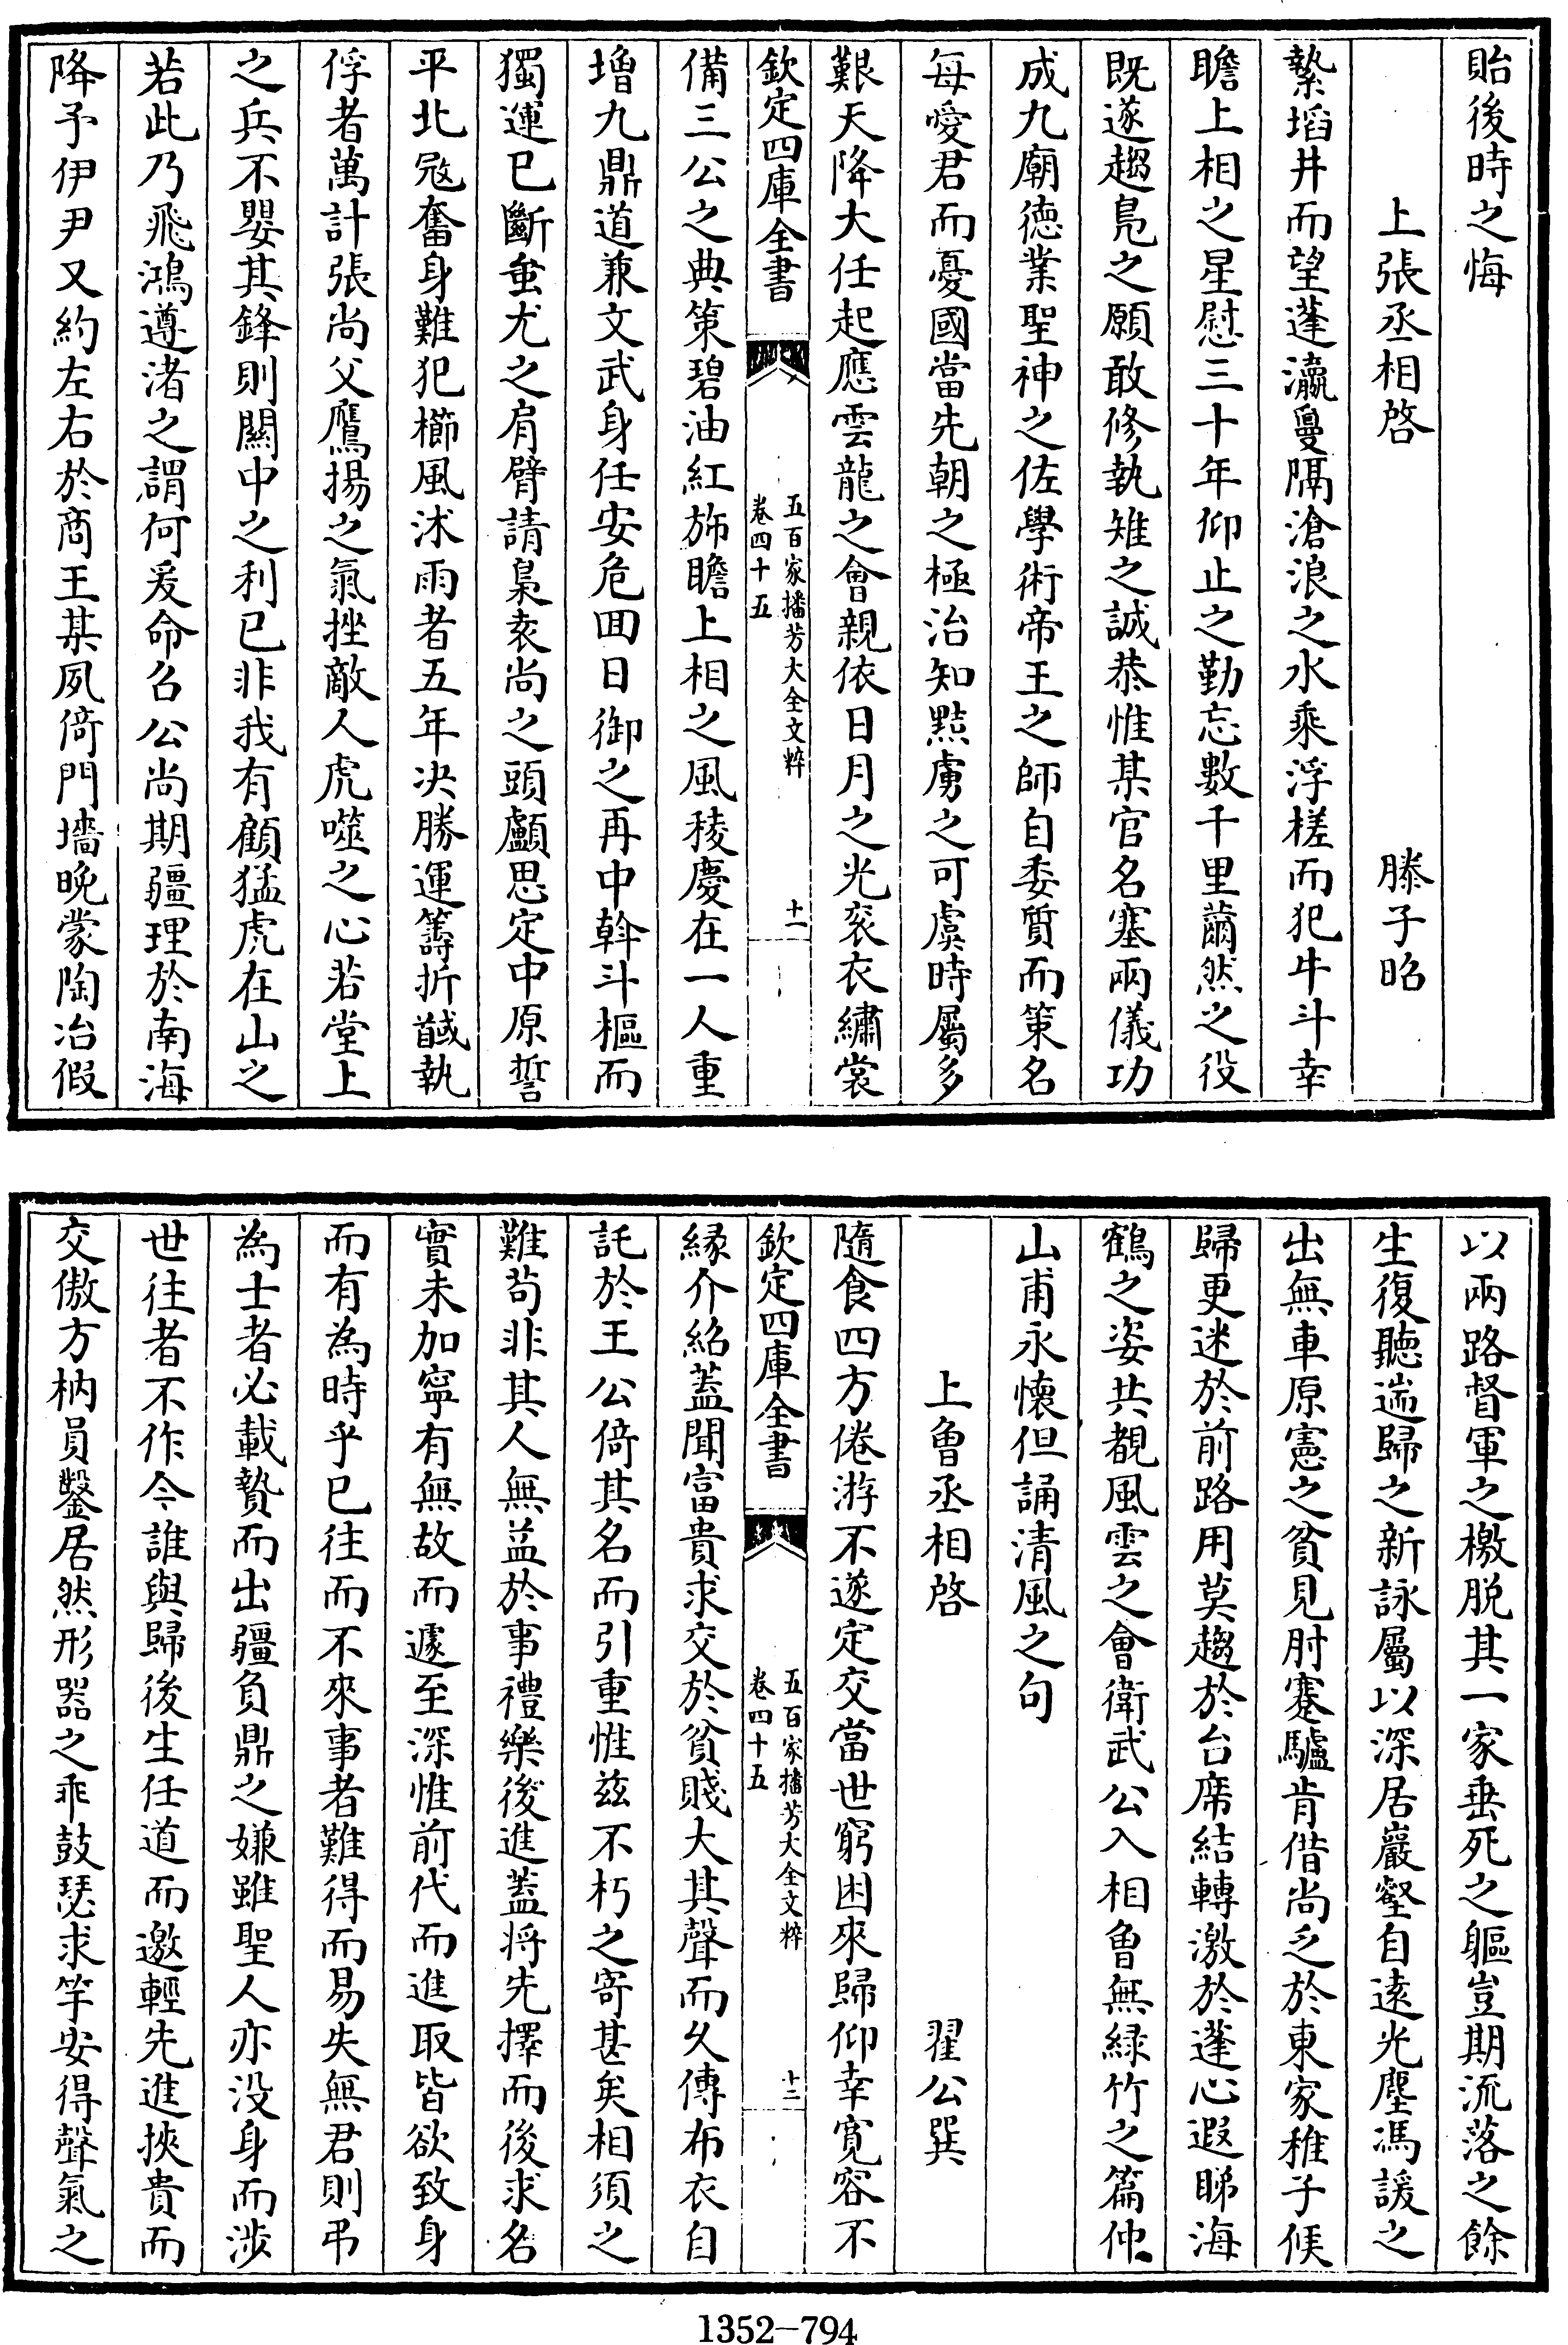 貽後時之悔
上張丞相啓　滕子昭
縶埳井而望蓬瀛敻隔滄浪之水乘浮槎而犯牛斗幸
瞻上相之星慰三十年仰止之勤忘數千里薾然之役
既遂趨鳧之願敢修執雉之誠恭惟某官名塞兩儀功
成九廟德業聖神之佐學術帝王之師自委質而策名
每愛君而憂國當先朝之極治知黠虜之可虞時屬多
艱天降大任起應雲龍之會親依日月之光衮衣繡裳
欽定四庫全書
五百家播芳大全文粹
卷四十五
十一
備三公之典策碧油紅斾瞻上相之風稜慶在一人重
增九鼎道兼文武身任安危回日御之再中斡斗樞而
獨運已斷蚩尤之肩臂請梟袁尚之頭顱思定中原誓
平北寇奮身難犯櫛風沐雨者五年决勝運籌折馘執
俘者萬計張尚父鷹揚之氣挫敵人虎噬之心若堂上
之兵不嬰其鋒則關中之利已非我有顧猛虎在山之
若此乃飛鴻遵渚之謂何爰命召公尚期疆理於南海
降予伊尹又約左右於商王某夙倚門墻晚蒙陶冶假
以兩路督軍之檄脱其一家垂死之軀豈期流落之餘
生復聽遄歸之新詠屬以深居巖壑自遠光塵馮諼之
出無車原憲之貧見肘蹇驢肯借尚乏於東家稚子候
歸更迷於前路用莫趨於台席結轉激於蓬心遐睇海
鶴之姿共覩風雲之會衛武公入相魯無緑竹之篇仲
山甫永懷但誦清風之句
上魯丞相啓　翟公巽
隨食四方倦游不遂定交當世窮困來歸仰幸寛容不
欽定四庫全書
五百家播芳大全文粹
卷四十五
十二
緣介紹蓋聞富貴求交於貧賤大其聲而久傳布衣自
託於王公倚其名而引重惟兹不朽之寄甚矣相須之
難苟非其人無益於事禮樂後進蓋将先擇而後求名
實未加寧有無故而遽至深惟前代而進取皆欲致身
而有為時乎已往而不來事者難得而易失無君則弔
為士者必載贄而出疆負鼎之嫌雖聖人亦没身而涉
世往者不作今誰與歸後生任道而邀輕先進挾貴而
交傲方枘員鑿居然形器之乖鼓瑟求竽安得聲氣之
1352-794